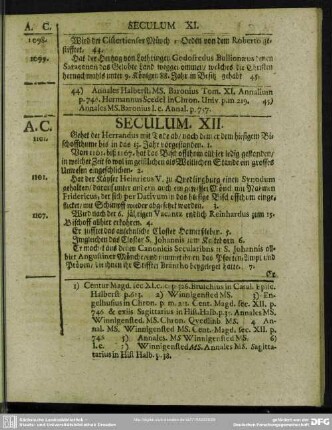 A. C. SECULUM XI.
1098. Wird den Cistertienser Mönch = Orden von dem Roberto ge-
stifftet. 44.
1099. Hat der Hertzog von Lothringen Godofredus Bullionæus denen
Saracenen das Gelobte Land weggenommen, welches die Christen
hernachmahls unter 9. Königen 88. Jahr in Besitz gehabt 45.
44) Annales Halberst. MS. Baronius Tom. XI. Annalium
p. 740. Hermannus Scedel in Chron. Univ p.m. 219. 45)
Annales MS. Baronius l. c. Annal. p. 757.
A.C. SECULUM. XII.
1101. Gehet der Herrandus mit Tode ab, nach dem er dem hiesigen Bi-
schoffthume bis in das 13. Jahr vorgestanden. 1.
Von 1101. bis 1107. hat das Bischoffthum alhier ledig gestanden,
in welcher Zeit so wol im geistlichen als Weltlichen Stande ein grosses
Unwesen eingeschlichen. 2.
Hat der Käyser Heinricus V. zu Quedlingburg einen Synodum
gehalten, darauf unter andern auch ein gewisser Mönch mit Namen
Fridericus, der sich per in das hiesige Bisch offthum einge-
flicket, mit Schimpff wieder abgesetzet worden. 3.
1107. Wird nach der 6. jährigen Vacantz endlich Reinhardus zum 15.
Bischoff alhier erkohren. 4.
Er stifftet das adenliche Closter Hemersleben. 5.
Imgleichen das Closter S. Johannis zum Kaltenborn 6.
Er macht aus denen Canonicis Secularibus in S. Johannis all-
hier Augustiner Mönche und nimmet ihnen das
welche ihnen ihr Stiffter Brantho beygeleget hatte. 7.
Er
1) Centur Magd. sec XI.
Halberst p. 613. 2) Winnigensted MS. 3) En-
gelhusius in Chron. p. m. MS. Cent. Magd. Sec. XII. p.
748 & exiis Sagittarius in Hist. Halb. Annales MS.
Winnigensted. MS. Chron. Quedlinb MS. 4 An-
nal. MS. Winnigensted MS. Cent. Magd. sec. XII. p.
748 5) Annales. MS Winnigensted MS. 6)
l. c. 7) Winnigensted MS. Annales MS. Sagitta-
rius in Hist Halb. p. 38.